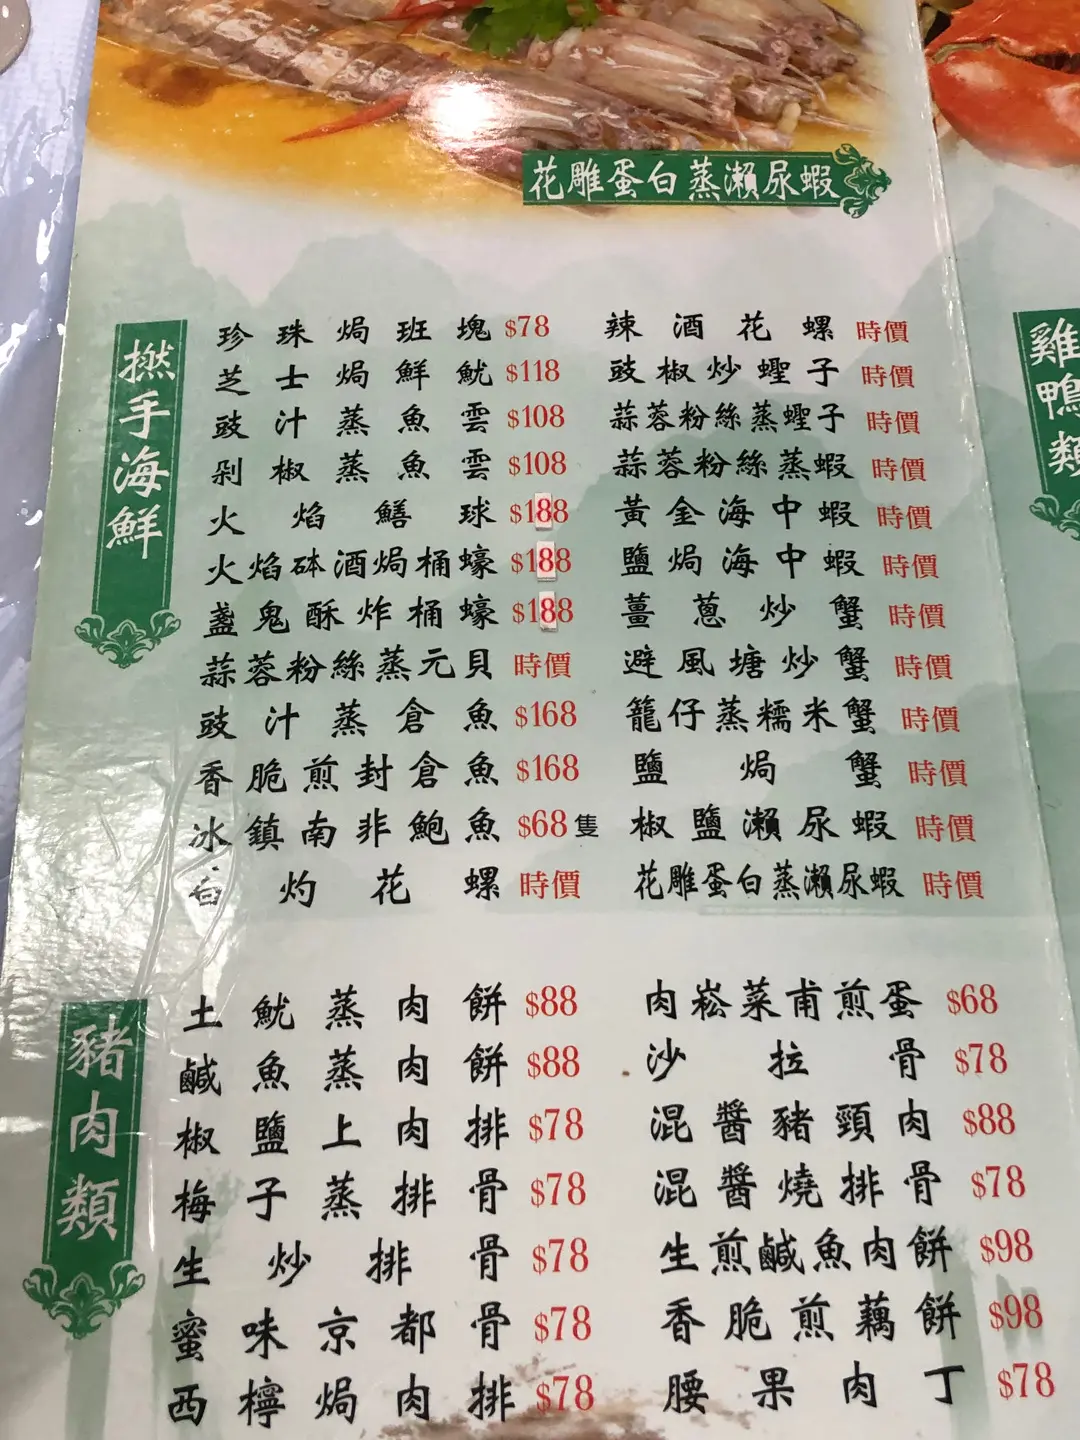 花雕蛋白蒸瀨尿蝦
撚手海鮮
珍珠焗班塊 $78
芝士焗鮮魷 $118
豉汁蒸魚雲 $108
剁椒蒸魚雲 $108
火焰鱔球 $188
火焰砵酒焗桶蠔 $188
盞鬼酥炸桶蠔 $188
蒜蓉粉絲蒸元貝 時價
豉汁蒸倉魚 $168
香脆煎封倉魚 $168
冰鎮南非鮑魚 $68隻
白灼花螺 時價
辣酒花螺 時價
豉椒炒蟶子 時價
蒜蓉粉絲蒸蟶子 時價
蒜蓉粉絲蒸蝦 時價
黃金海中蝦 時價
鹽焗海中蝦 時價
薑蔥炒蟹 時價
避風塘炒蟹 時價
籠仔蒸糯米蟹 時價
鹽焗蟹 時價
椒鹽瀨尿蝦 時價
花雕蛋白蒸瀨尿蝦 時價
豬肉類
土魷蒸肉餅 $88
鹹魚蒸肉餅 $88
椒鹽上肉排 $78
梅子蒸排骨 $78
生炒排骨 $78
蜜味京都骨 $78
西檸焗肉排 $78
肉崧菜甫煎蛋 $68
沙拉骨 $78
混醬豬頸肉 $88
混醬燒排骨 $78
生煎鹹魚肉餅 $98
香脆煎藕餅 $98
腰果肉丁 $78
雞鴨類